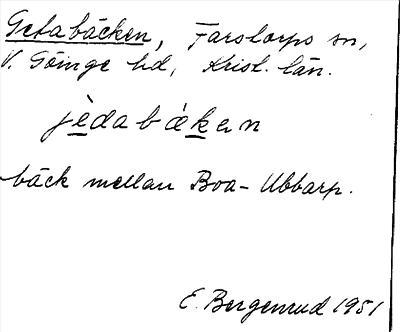 Getabäcken, Farstorps sn,
V. Göinge hd, Krist. län.
jèdabǽkan
bäck mellan Boa-Ubbarp.
E. Bergenrud 1951